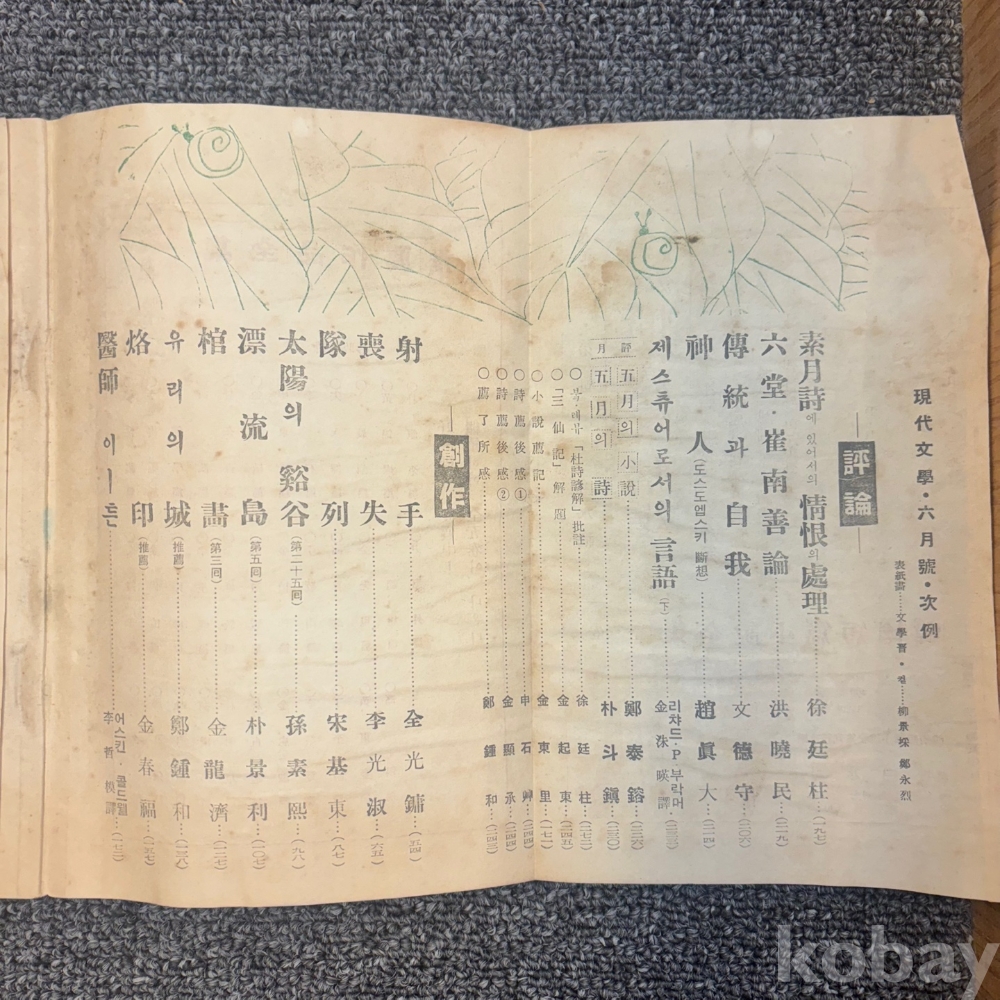 現代文學·六月號·次例
表紙畵……文學晋·컽……柳景埰 鄭永烈
評論
素月詩에 있어서의 情恨의 處理……徐廷柱(一九七)
六堂·崔南善論……洪曉民(二一九)
傳統과 自我……文德守(二〇六)
神人(도스도엡스키 斷想)……趙眞大(二一四)
제스츄어로서의 言語(下)……리챠드·P·부락머 金洙暎譯(二三三)
評 五月의 小說……鄭泰鎔(二二六)
月 五月의 詩……朴斗鎭(二三〇)
○북·레뷰「杜詩諺解」批註……徐廷柱(一七二)
○「三仙記」解題……金起東(二四五)
○小說薦記……金東里(一七一)
○詩薦後感①……申石艸(二四四)
○詩薦後感②……金顯承(二四四)
○薦了所感……鄭鍾和(二四三)
創作
射手……全光鏞(五四)
喪失……李光淑(六五)
隊列……宋基東(八七)
太陽의 谿谷(第二十五回)……孫素熙(九八)
漂流島(第五回)……朴景利(一〇七)
棺畵(第三回)……金龍濟(一二七)
유리의 城(推薦)……鄭鍾和(一三八)
烙印(推薦)……金春福(一五七)
醫師 이ㅣ튼……어스킨·콜드웰 李哲模譯
kobay